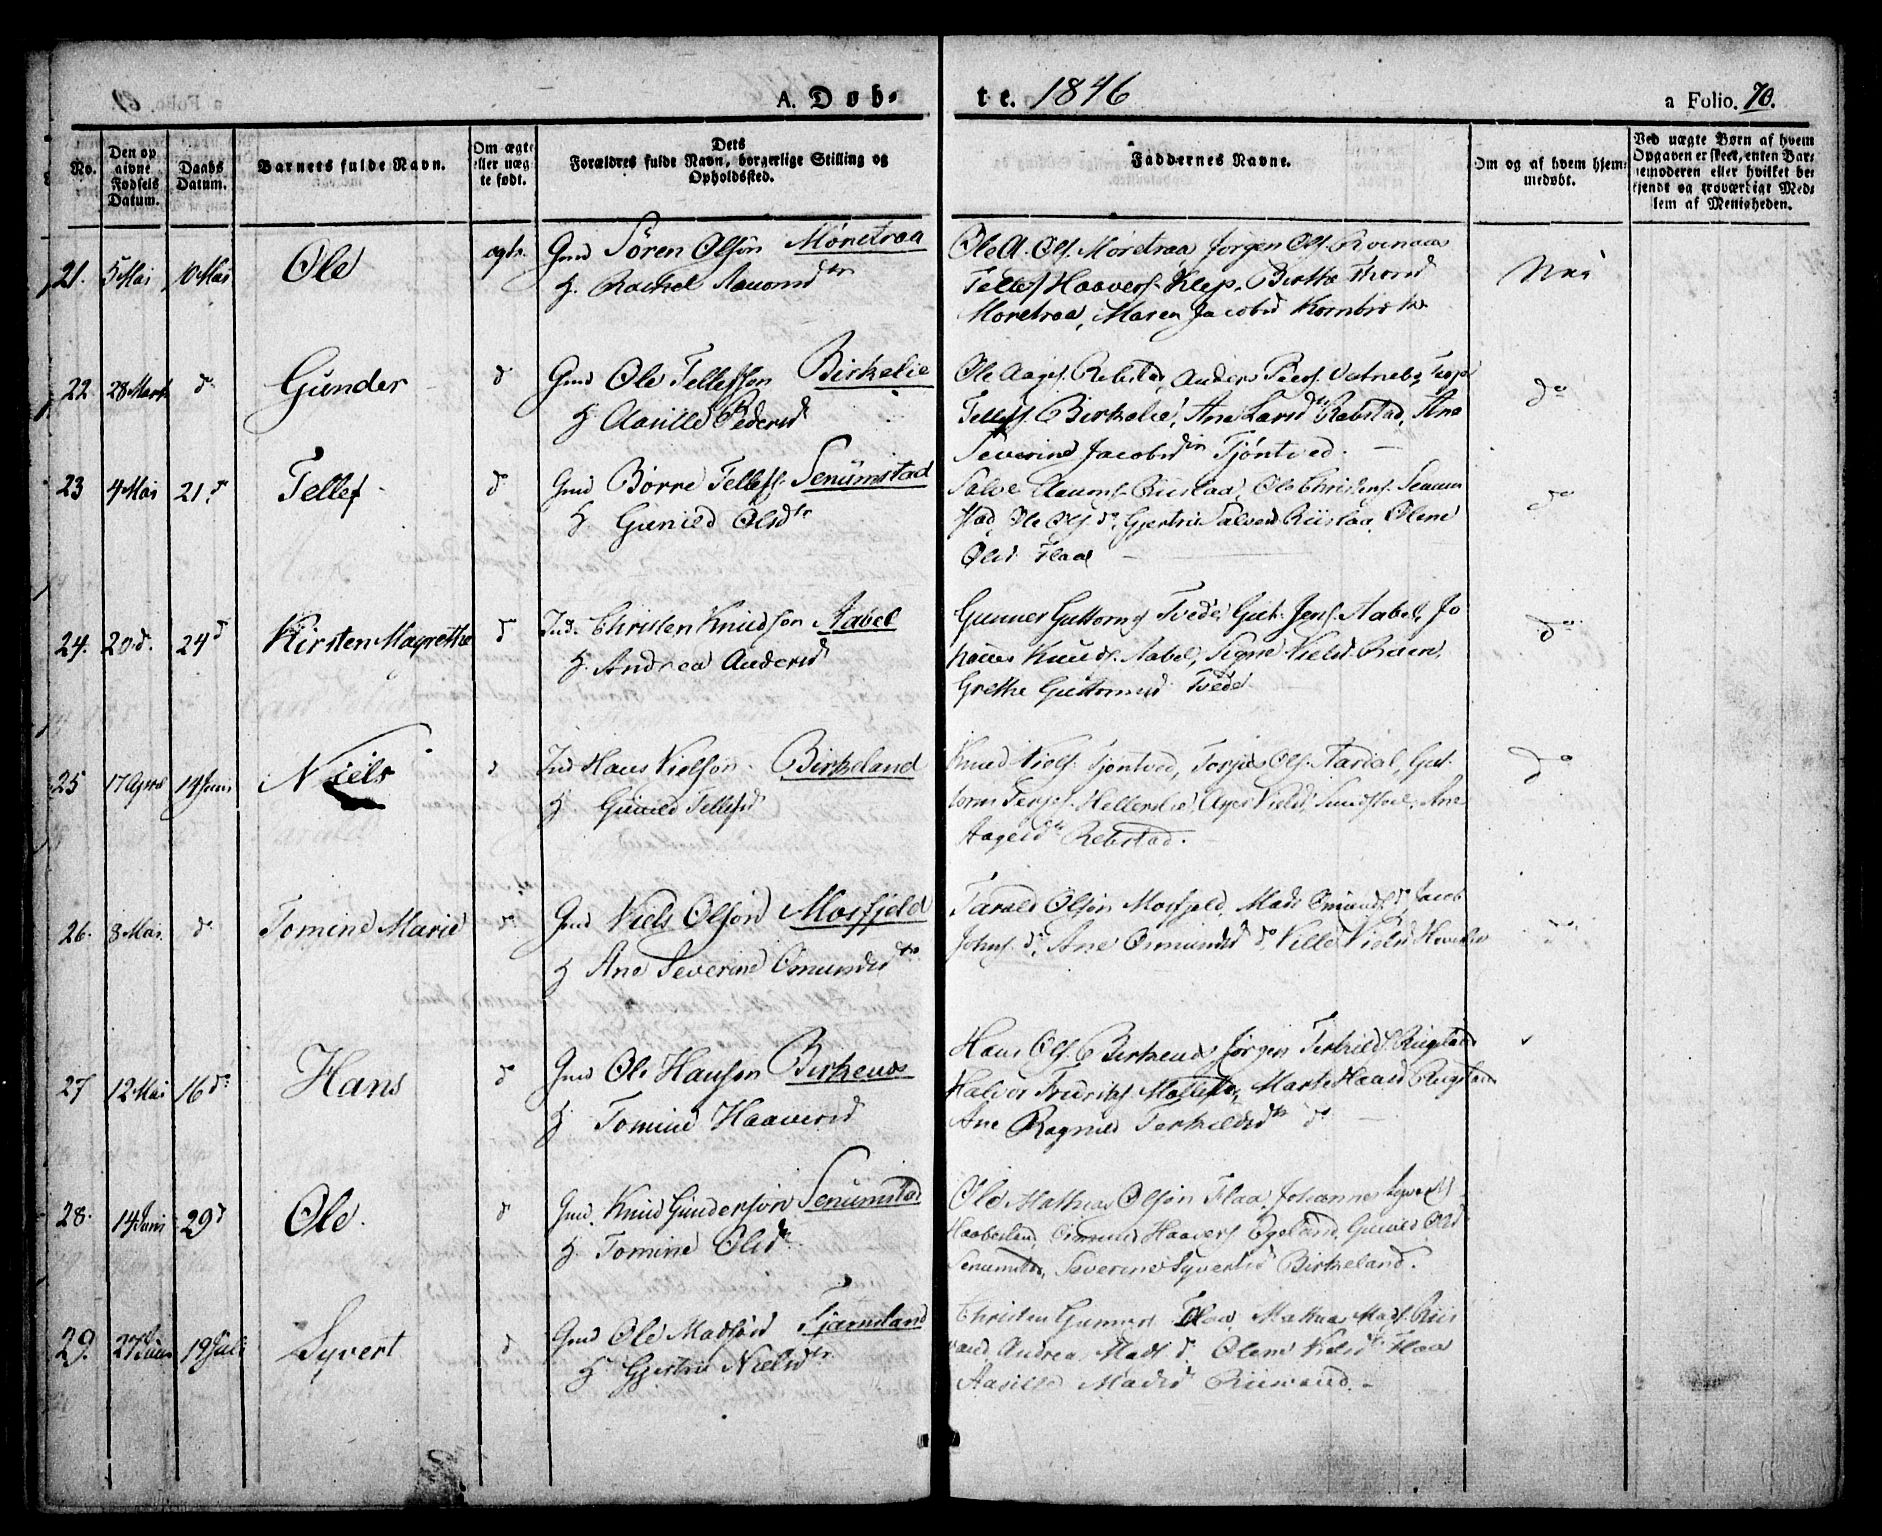 A. Döb-
te. 1846
a Folio. 70.
No.
Den op
givne
Fødsels
Datum.
Daabs
Datum.
Barnets fulde Navn.
Om ægte
eller uæg
te født.
Dets
Forældres fulde Navn, borgerlige Stilling og
Opholdssted.
Faddernes Navne.
Om og af hvem hjem-
medøbt.
Ved uægte Børn af hvem
Opgaven er skeet, enten Bar-
nemoderen eller hvilket be
kjendt og troværdigt Med-
lem af Menigheden.
21. 5 Mai 10 Mai Ole ægte Gmd Sören Olsön Mönetraa
H. Rachel Aanonsdtr
Ole A. Ols. Mönetraa, Jörgen Ols.
Tellef Haavers. Klep, Birthe Thorsd
Monetraa, Maren Jacobsd
Nei
22. 28 Marts do Gunder do Gmd Ole Tellefsön Birkelie
H Aasille Pedersd
Ole Aages. Rebstad, Anders Peers. Vatnebo,
Tellefs. Birkelie, Ane Larsdtr Rebstad, Ane
Severine Jacobsdtr Tjöntved.
do
23 4 Mai 21 d Tellef do Gmd Börre Tellefs. Senumstad
H. Gunild Olsdtr
Salve Aanons. Riislaa, Ole Christens. Senum
stad, Ole Ols. do, Gjertrud Salvesd Riislaa, Olene
Olsd. Flaa
do
24. 20 d. 24 d Kirsten Magrethe do Ind. Christen Knudsön Aabel
H. Andrea Andersd
Gunner Guttorms Tvede, Gut. Jens. Aabel, Jo
hannes Knuds. Aabel, Signe Nielsd.
Grethe Guttormsd Tvede
do
25 17 April 14 Juni Niels do Ind Hans Nielsön Birkeland
H Gunild Tellefsd
Knud Niels. Tjöntved, Torjus Ols. Aardal, Gut
torm Terjes. Hellerslie, Nielsd, Sundstad, Ane
Aagesdtr Rebstad.
do
26. 8 Mai. do Tomine Marie do Gmd Niels Olsön Mosfjeld
H Ane Severine Osmundsdtr
Tarald Olsön Mosfjeld, Mads Osmunds. do, Jacob
Johns. do, Ane Osmundsd do, Nielsd
do
27 12 Mai 16 d. Hans do Gmd Ole Hansön Birkenes
H Tomine Haaversd
Hans Ols. Birkenes, Jörgen Terkilds. Rugstad
Halvor Fredriks. Mollestö, Marthe Haaversd Rugstad
Ane Ragnild Terkeldsdtr do
28. 14 Juni 29 d Ole do Gmd. Knud Gundersön Senumstad
H. Tomine Olsdtr
Ole Mathias Olsön Flaa, Johannes Syvers.
Haabesland, Osmund Haavers Egeland, Gunild Olsd
Senumstad, Severine Syvertsd Birkeland.
29. 27 Juni 19 Juli Syvert do Gmd Ole Madsön Tjameland
H Gjertrud Nielsdtr
Christen Gunners Flaa, Mathias Mads. Riis
vand, Andreas Mads. do. Olene Nielsdtr Flaa
Aasille Madsd Riisvand.